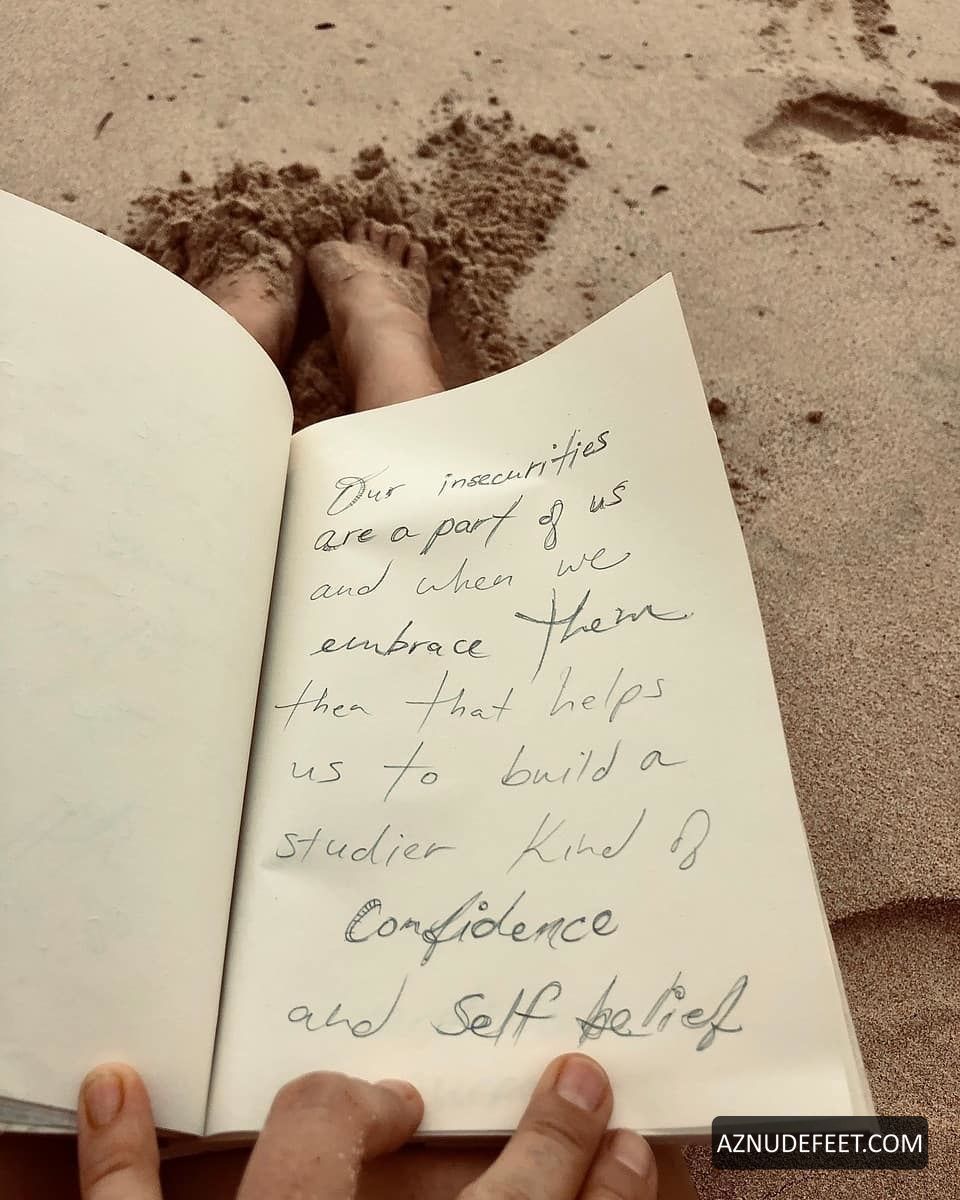 Our insecurities
are a part of us
and when we
embrace them
then that helps
us to build a
studier kind of
Confidence
and Self belief
AZNUDEFEET.COM